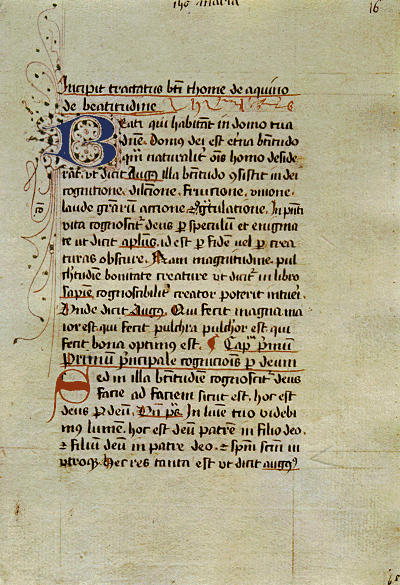 ihs maria
16
Incipit tractatus bti thome de aquino
de beatitudine
Beati qui habitant in domo tua
dne. domus dei est etna btitudo
qm naturalit ois homo deside
rat. vt dicit Aug9 illa btitudo 9sistit in dei
cognitione. dilcione. fruicione. vnione.
laude grarum actione 9gratulatione. In pnti
vita cognoscit deus p speculum et enigma
te ut dicit aplus. id est p fidem uel p crea
turas obscure. Nam magnitudine. pul
chitudine bonitate creature ut dicit in libro
sapie. cognoscibilit creator poterit intueri.
Vnde dicit Aug9. Qui fecit magna ma
ior est. qui fecit pulchra pulchior est. qui
fecit bona optimus est. Capm primum
Primum principale cognicionis p deum
Sed in illa btitudine cognoscit deus
facie ad faciem sicut est. hoc est
deus p deum. Vn ps. In luie tuo videbi
mus lumen. hoc est deum patrem in filio deo.
et filium deum in patre deo. et spm scum in
vtroque. Hec res tanti est vt dicit augus